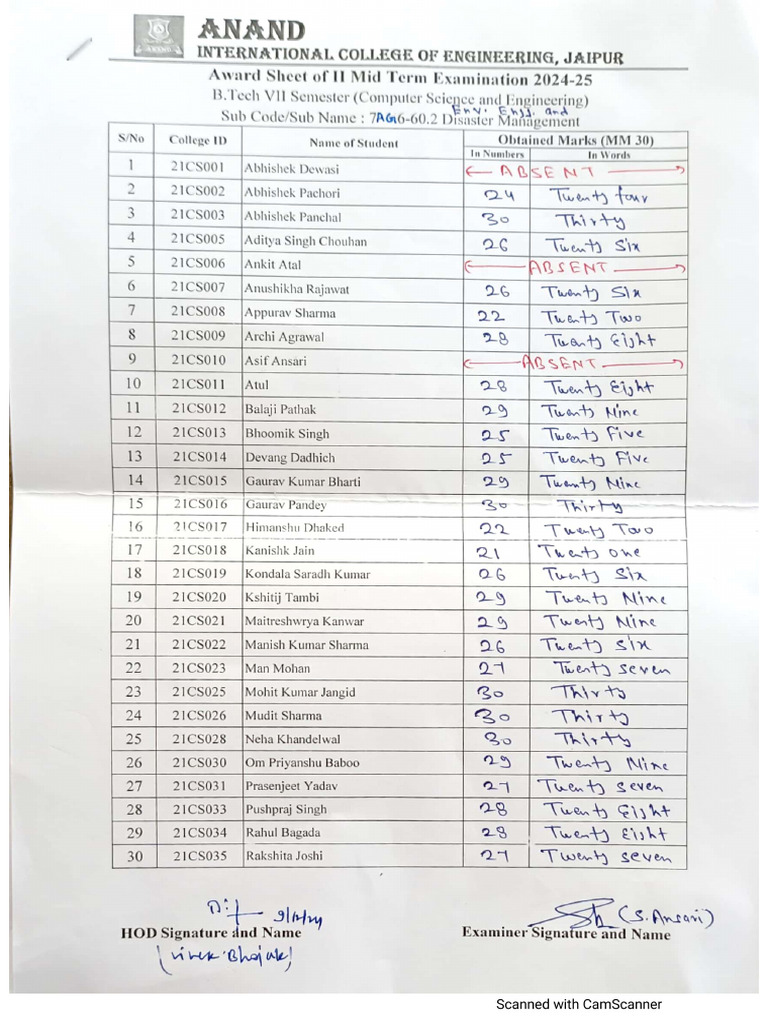 ANAND
INTERNATIONAL COLLEGE OF ENGINEERING, JAIPUR
Award Sheet of II Mid Term Examination 2024-25
B.Tech VII Semester (Computer Science and Engineering)
Env. Engg. and
Sub Code/Sub Name : 7AG6-60.2 Disaster Management
S/No College ID Name of Student Obtained Marks (MM 30)
In Numbers In Words
1 21CS001 Abhishek Dewasi ABSENT
2 21CS002 Abhishek Pachori 24 Twenty four
3 21CS003 Abhishek Panchal 30 Thirty
4 21CS005 Aditya Singh Chouhan 26 Twenty Six
5 21CS006 Ankit Atal ABSENT
6 21CS007 Anushikha Rajawat 26 Twenty Six
7 21CS008 Appurav Sharma 22 Twenty Two
8 21CS009 Archi Agrawal 28 Twenty Eight
9 21CS010 Asif Ansari ABSENT
10 21CS011 Atul 28 Twenty Eight
11 21CS012 Balaji Pathak 29 Twenty Nine
12 21CS013 Bhoomik Singh 25 Twenty Five
13 21CS014 Devang Dadhich 25 Twenty Five
14 21CS015 Gaurav Kumar Bharti 29 Twenty Nine
15 21CS016 Gaurav Pandey 30 Thirty
16 21CS017 Himanshu Dhaked 22 Twenty Two
17 21CS018 Kanishk Jain 21 Twenty one
18 21CS019 Kondala Saradh Kumar 26 Twenty Six
19 21CS020 Kshitij Tambi 29 Twenty Nine
20 21CS021 Maitreshwrya Kanwar 29 Twenty Nine
21 21CS022 Manish Kumar Sharma 26 Twenty Six
22 21CS023 Man Mohan 27 Twenty seven
23 21CS025 Mohit Kumar Jangid 30 Thirty
24 21CS026 Mudit Sharma 30 Thirty
25 21CS028 Neha Khandelwal 30 Thirty
26 21CS030 Om Priyanshu Baboo 29 Twenty Nine
27 21CS031 Prasenjeet Yadav 27 Twenty seven
28 21CS033 Pushpraj Singh 28 Twenty Eight
29 21CS034 Rahul Bagada 28 Twenty Eight
30 21CS035 Rakshita Joshi 27 Twenty seven
9/12/24 (S. Ansari)
HOD Signature and Name Examiner Signature and Name
(Vivek Bhojak)
Scanned with CamScanner